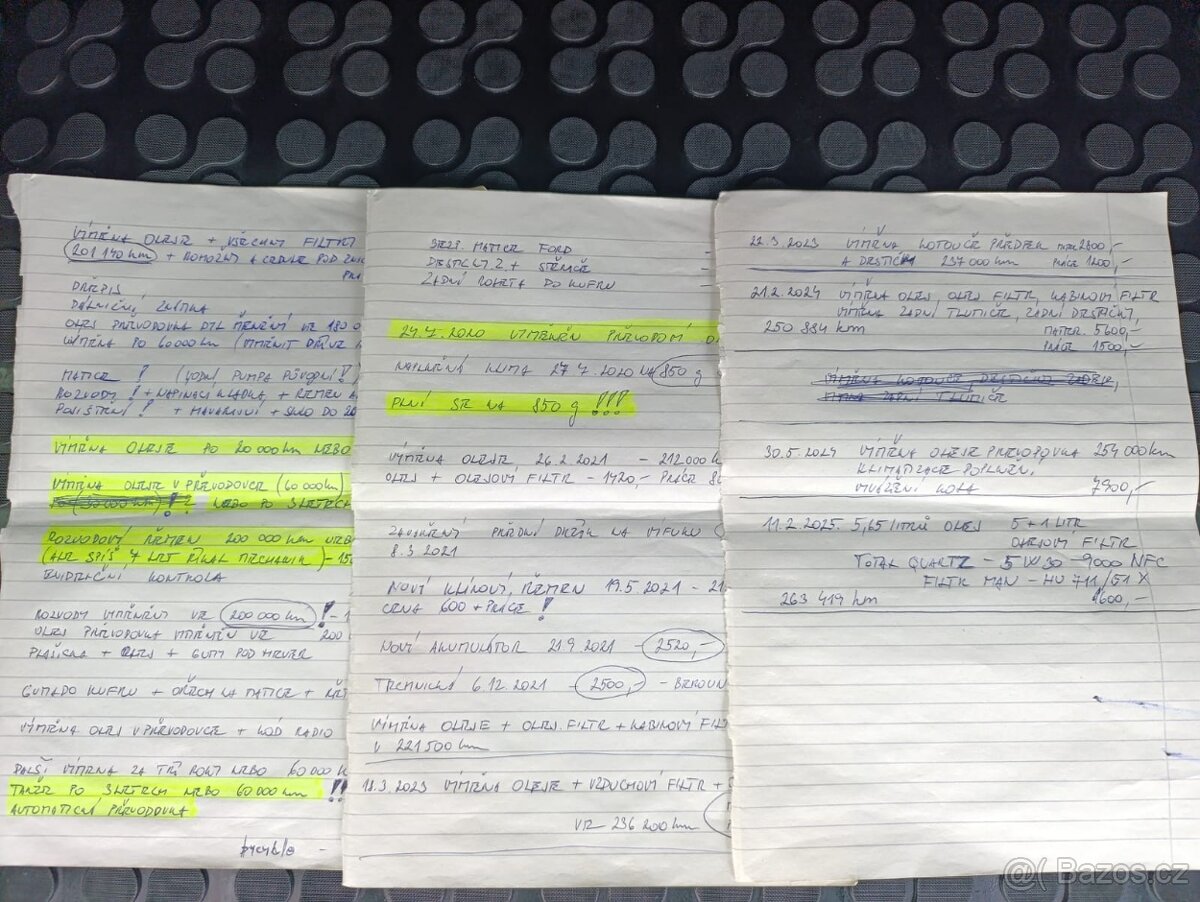 VÝMĚNA OLEJE + VŠECHNY FILTRY
201 140 km + ROMOŽKY A CEDULE POD
PŘEPIS
DÁLNIČNÍ ZNÁMKA
OLEJ PŘEVODOVKA BYL MĚNĚNÍ VE 180 0
VÝMĚNA PO 60 000 km (VYMĚNIT DŘÍVE
MATICE ! (VODNÍ PUMPA PŮVODNÍ!)
ROZVODY ! + NAPÍNACÍ KLADKA + ŘEMEN
POJIŠTĚNÍ ! + HAVARIJNÍ + SKLO DO 20
VÝMĚNA OLEJE PO 20 000 km NEBO
VÝMĚNA OLEJE V PŘEVODOVCE (60 000 km)
NEBO PO 3 LETECH
ROZVODOVÝ ŘEMEN 200 000 km NEBO
(ALE SPÍŠ 7 LET ŘÍKAL MECHANIK) - 150
EVIDENČNÍ KONTROLA
ROZVODY VYMĚNĚNY VE 200 000 km ! -
OLEJ PŘEVODOVKA VYMĚNĚN VE 200
PLAŠIČKA + OLEJ + GUMY POD
GUMA DO KUFRU + OŘECH NA MATICE +
VÝMĚNA OLEJ V PŘEVODOVCE + KÓD RADIO
DALŠÍ VÝMĚNA ZA TŘI ROKY NEBO 60 000 k
TAKŽE PO 3 LETECH NEBO 60 000 km !!
AUTOMATICKÁ PŘEVODOVKA
MATICE FORD
DESTIČKY 2 + STĚRAČE
ZADNÍ ROLETA DO KUFRU
24.7. 2020 VYMĚNĚN
NAPLNĚNÁ KLIMA 27.7.2020 NA 850 g
PLNÍ SE NA 850 g !!!
VÝMĚNA OLEJE 26.2.2021 - 212 000 k
OLEJ + OLEJOVÝ FILTR - 1420,- PRÁCE
ZAVAŘENÝ PŘEDNÍ DRŽÁK NA VÝFUKU
8.3 2021
NOVÝ KLÍNOVÝ ŘEMEN 19.5 2021 - 21
CENA 600 + PRÁCE !
NOVÝ AKUMULÁTOR 21.9 2021 - 2520,-
TECHNICKÁ 6.12.2021 - 2500,- - BEROUN
VÝMĚNA OLEJE + OLEJ. FILTR + KABINOVÝ FIL
V 221 500 km
VÝMĚNA OLEJE + VZDUCHOVÝ FILTR +
VE 236 200 km
22.3.2023 VÝMĚNA KOTOUČE PŘEDEK 2800,-
A DESTIČKY 237 000 km PRÁCE 1200,-
21.2.2024 VÝMĚNA OLEJ, OLEJ FILTR, KABINOVÝ FILTR
VÝMĚNA ZADNÍ TLUMIČE, ZADNÍ DESTIČKY,
250 884 km MATER. 5600,-
PRÁCE 1500,-
VÝMĚNA KOTOUČE, DESTIČKY ZADEK,
VÝMĚNA ZADNÍ TLUMIČE
30.5.2024 VÝMĚNA OLEJE PŘEVODOVKA 254 000 km
KLIMATIZACE DOPLNĚNÍ
VYVÁŽENÍ KOLA 7900,-
11.2.2025. 5,65 LITRŮ OLEJ 5 + 1 LITR
OLEJOVÝ FILTR
TOTAL QUARTZ - 5W30 - 9000 NFC
FILTR MAN - HU 711/51 X
263 419 km 1600,-
@( Bazos.cz